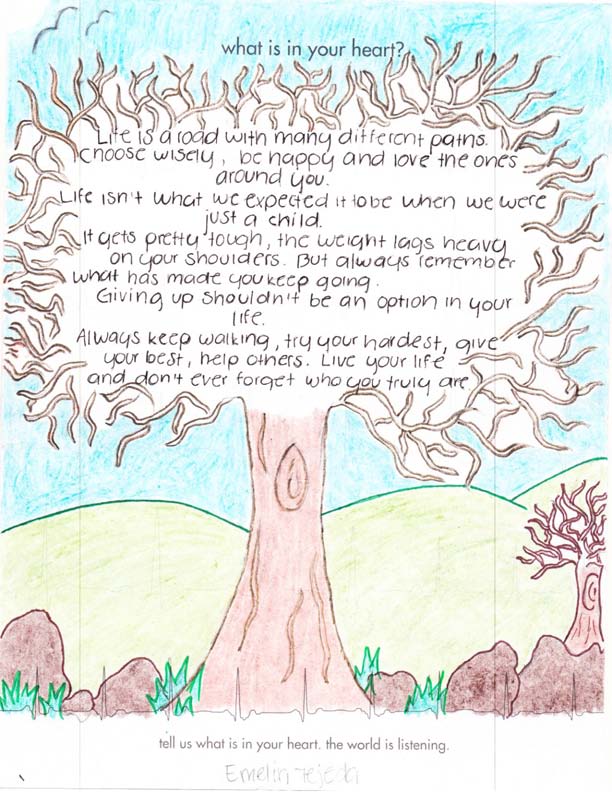 what is in your heart?
Life is a road with many different paths.
choose wisely, be happy and love the ones
around you.
Life isn't what we expected it to be when we were
just a child.
It gets pretty tough, the weight lags heavy
on your shoulders. But always remember
what has made you keep going.
Giving up shouldn't be an option in your
life.
Always keep walking, try your hardest, give
your best, help others. Live your life
and don't ever forget who you truly are
tell us what is in your heart. the world is listening.
Emelin Tejeda